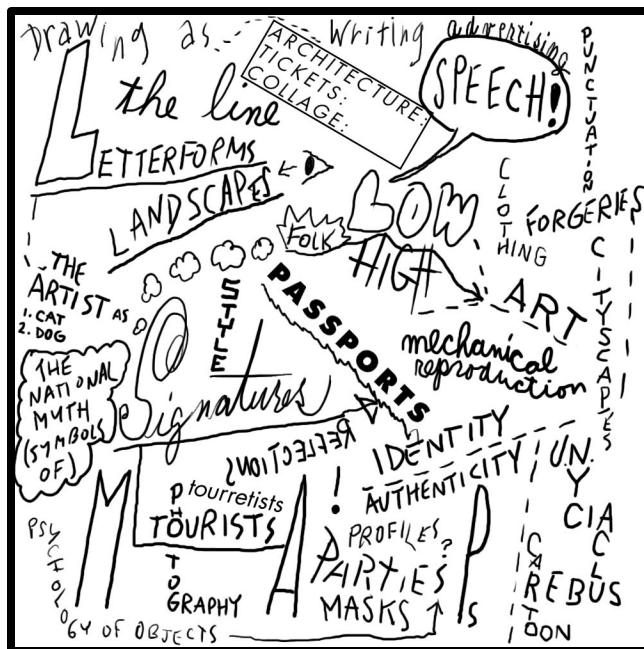 Drawing as
Writing advertising
ARCHITECTURE:
TICKETS:
COLLAGE:
SPEECH!
PUNCTUATION
the line
LETTERFORMS
LANDSCAPES
LOW
FOLK
HIGH
ART
CLOTHING
FORGERIES
CITYSCAPES
THE
ARTIST AS
1. CAT
2. DOG
STYLE
PASSPORTS
mechanical
reproduction
THE
NATIONAL
MYTH
(SYMBOLS
OF)
Signatures
REFLECTIONS
IDENTITY
AUTHENTICITY
U.N.
NYC
CIA
CLUBS
MAPS
!
PHOTOGRAPHY
tourretists
TOURISTS
PROFILES?
PARTIES
MASKS
CARTOON
REBUS
PSYCHOLOGY OF OBJECTS